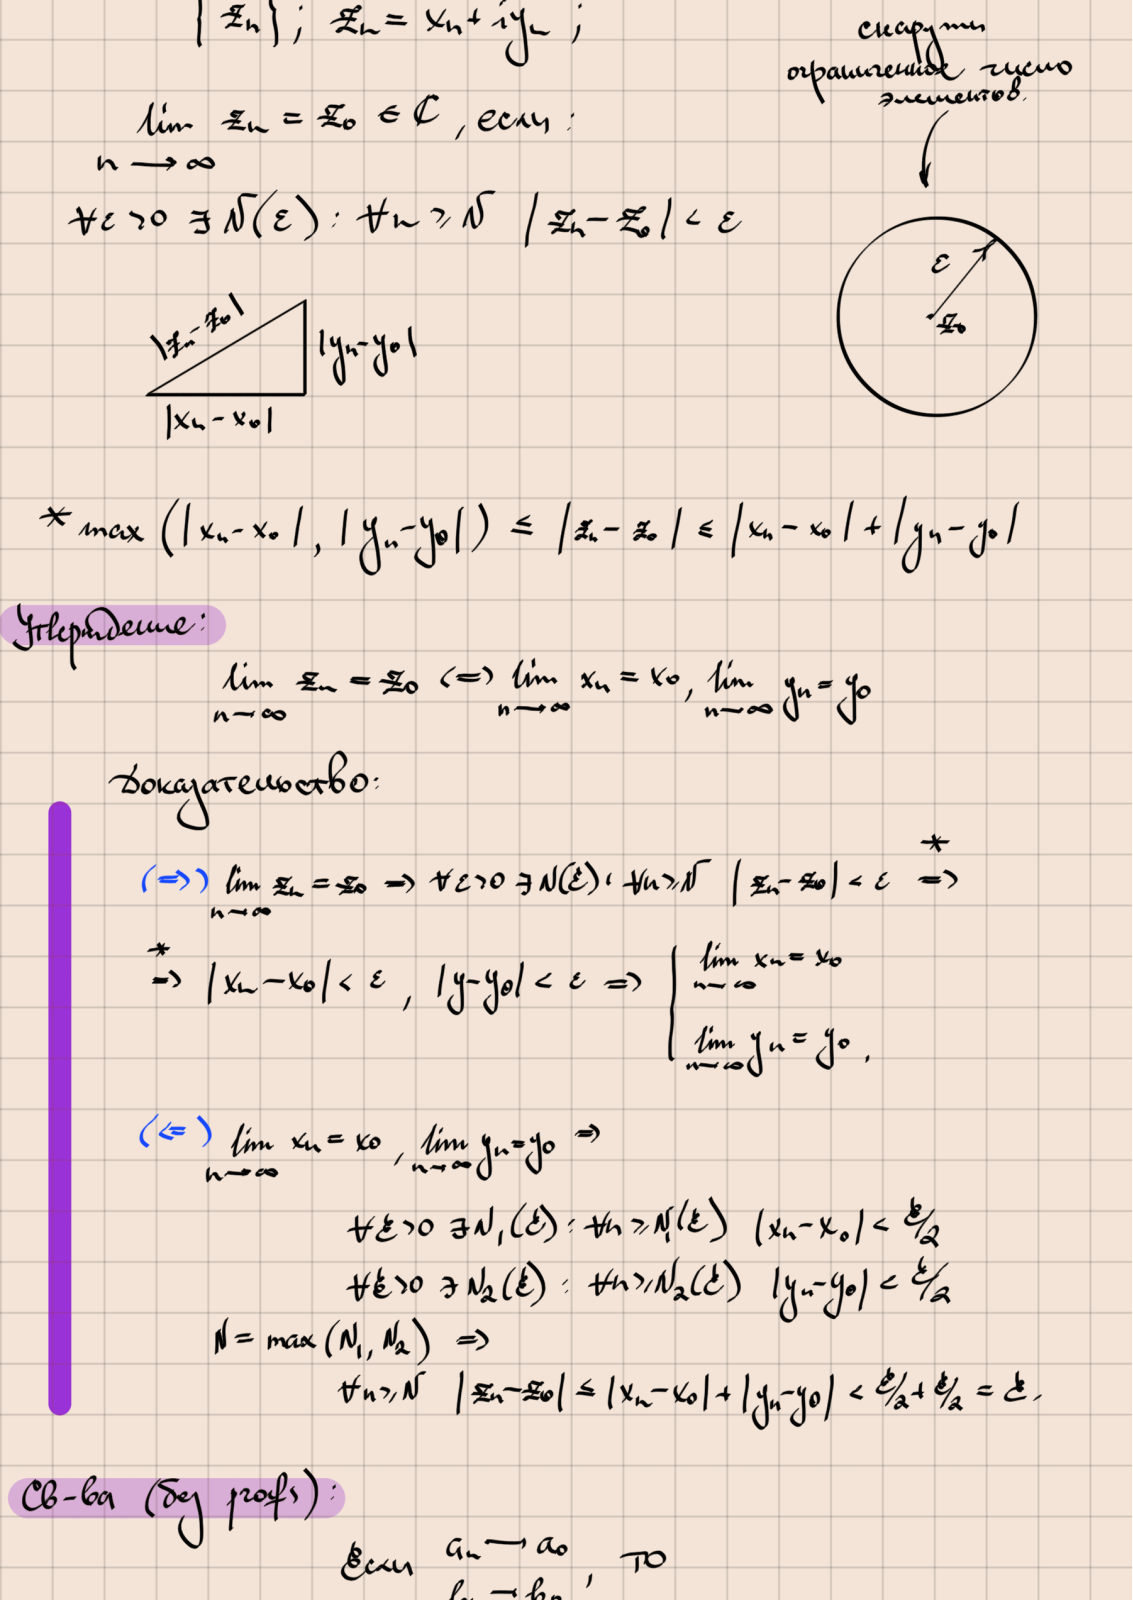 { z_n }; z_n = x_n + iy_n ;
снаружи
ограниченное число
элементов.
lim z_n = z_0 ∈ ℂ, если:
n → ∞
∀ε > 0 ∃ N(ε) : ∀n ≥ N |z_n - z_0| < ε
ε
z_0
|z_n - z_0|
|y_n - y_0|
|x_n - x_0|
* max (|x_n - x_0|, |y_n - y_0|) ≤ |z_n - z_0| ≤ |x_n - x_0| + |y_n - y_0|
Утверждение:
lim z_n = z_0 <=> lim x_n = x_0, lim y_n = y_0
n → ∞ n → ∞ n → ∞
Доказательство:
*
(=>) lim z_n = z_0 => ∀ε > 0 ∃ N(ε) : ∀n ≥ N |z_n - z_0| < ε =>
n → ∞
*
=> |x_n - x_0| < ε, |y - y_0| < ε => lim x_n = x_0
n → ∞
lim y_n = y_0.
n → ∞
(<=) lim x_n = x_0, lim y_n = y_0 =>
n → ∞ n → ∞
∀ε > 0 ∃ N_1(ε) : ∀n ≥ N_1(ε) |x_n - x_0| < ε/2
∀ε > 0 ∃ N_2(ε) : ∀n ≥ N_2(ε) |y_n - y_0| < ε/2
N = max (N_1, N_2) =>
∀n ≥ N |z_n - z_0| ≤ |x_n - x_0| + |y_n - y_0| < ε/2 + ε/2 = ε.
Св-ва (без proofs):
Если a_n → a_0, то
b_n → b_0